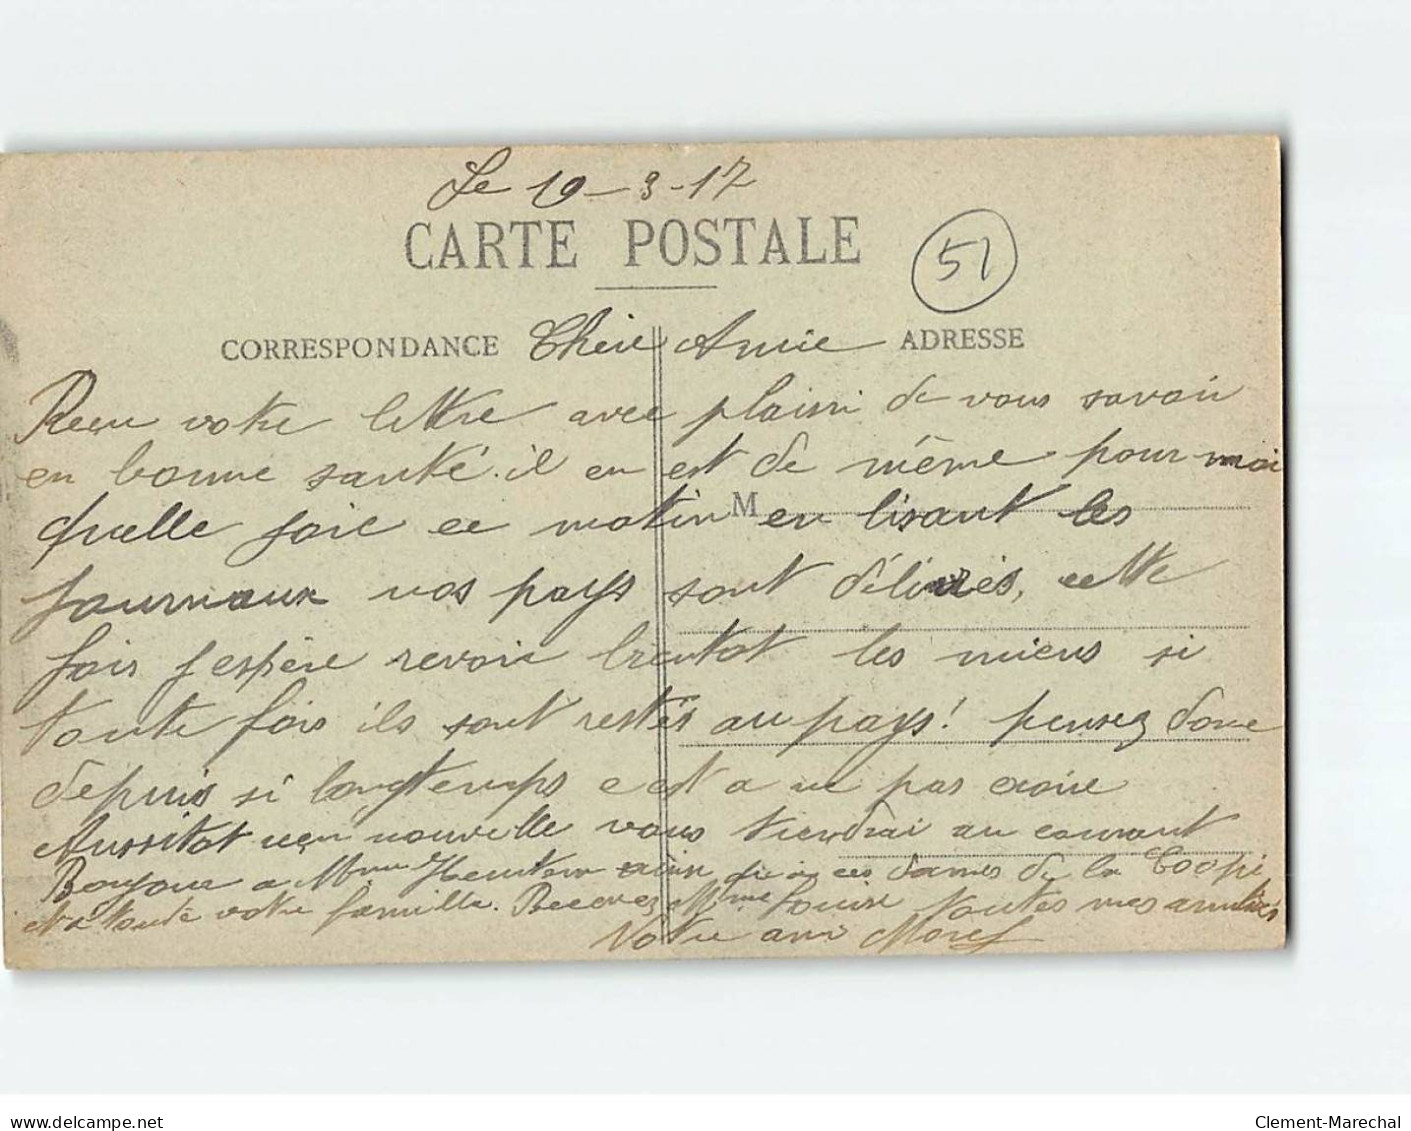 Le 19-3-17
CARTE POSTALE
51
CORRESPONDANCE Chère Amie ADRESSE
Reçu votre lettre avec plaisir de vous savoir
en bonne santé. il en est de même pour moi
M
quelle joie ce matin en lisant les
journaux nos pays sont délivrés, cette
fois j espère revoir bientot les miens si
toute fois ils sont restés au pays! pensez donc
depuis si longtemps c est a ne pas croire
Aussitot reçu nouvelle vous tiendrai au courant
Bonjour a Mme ainsi qu'à ces dames de la Coopé
et a toute votre famille. Recevez Mme Louise toutes mes amitiés
Votre ami Morel
Clement-Marechal
www.delcampe.net